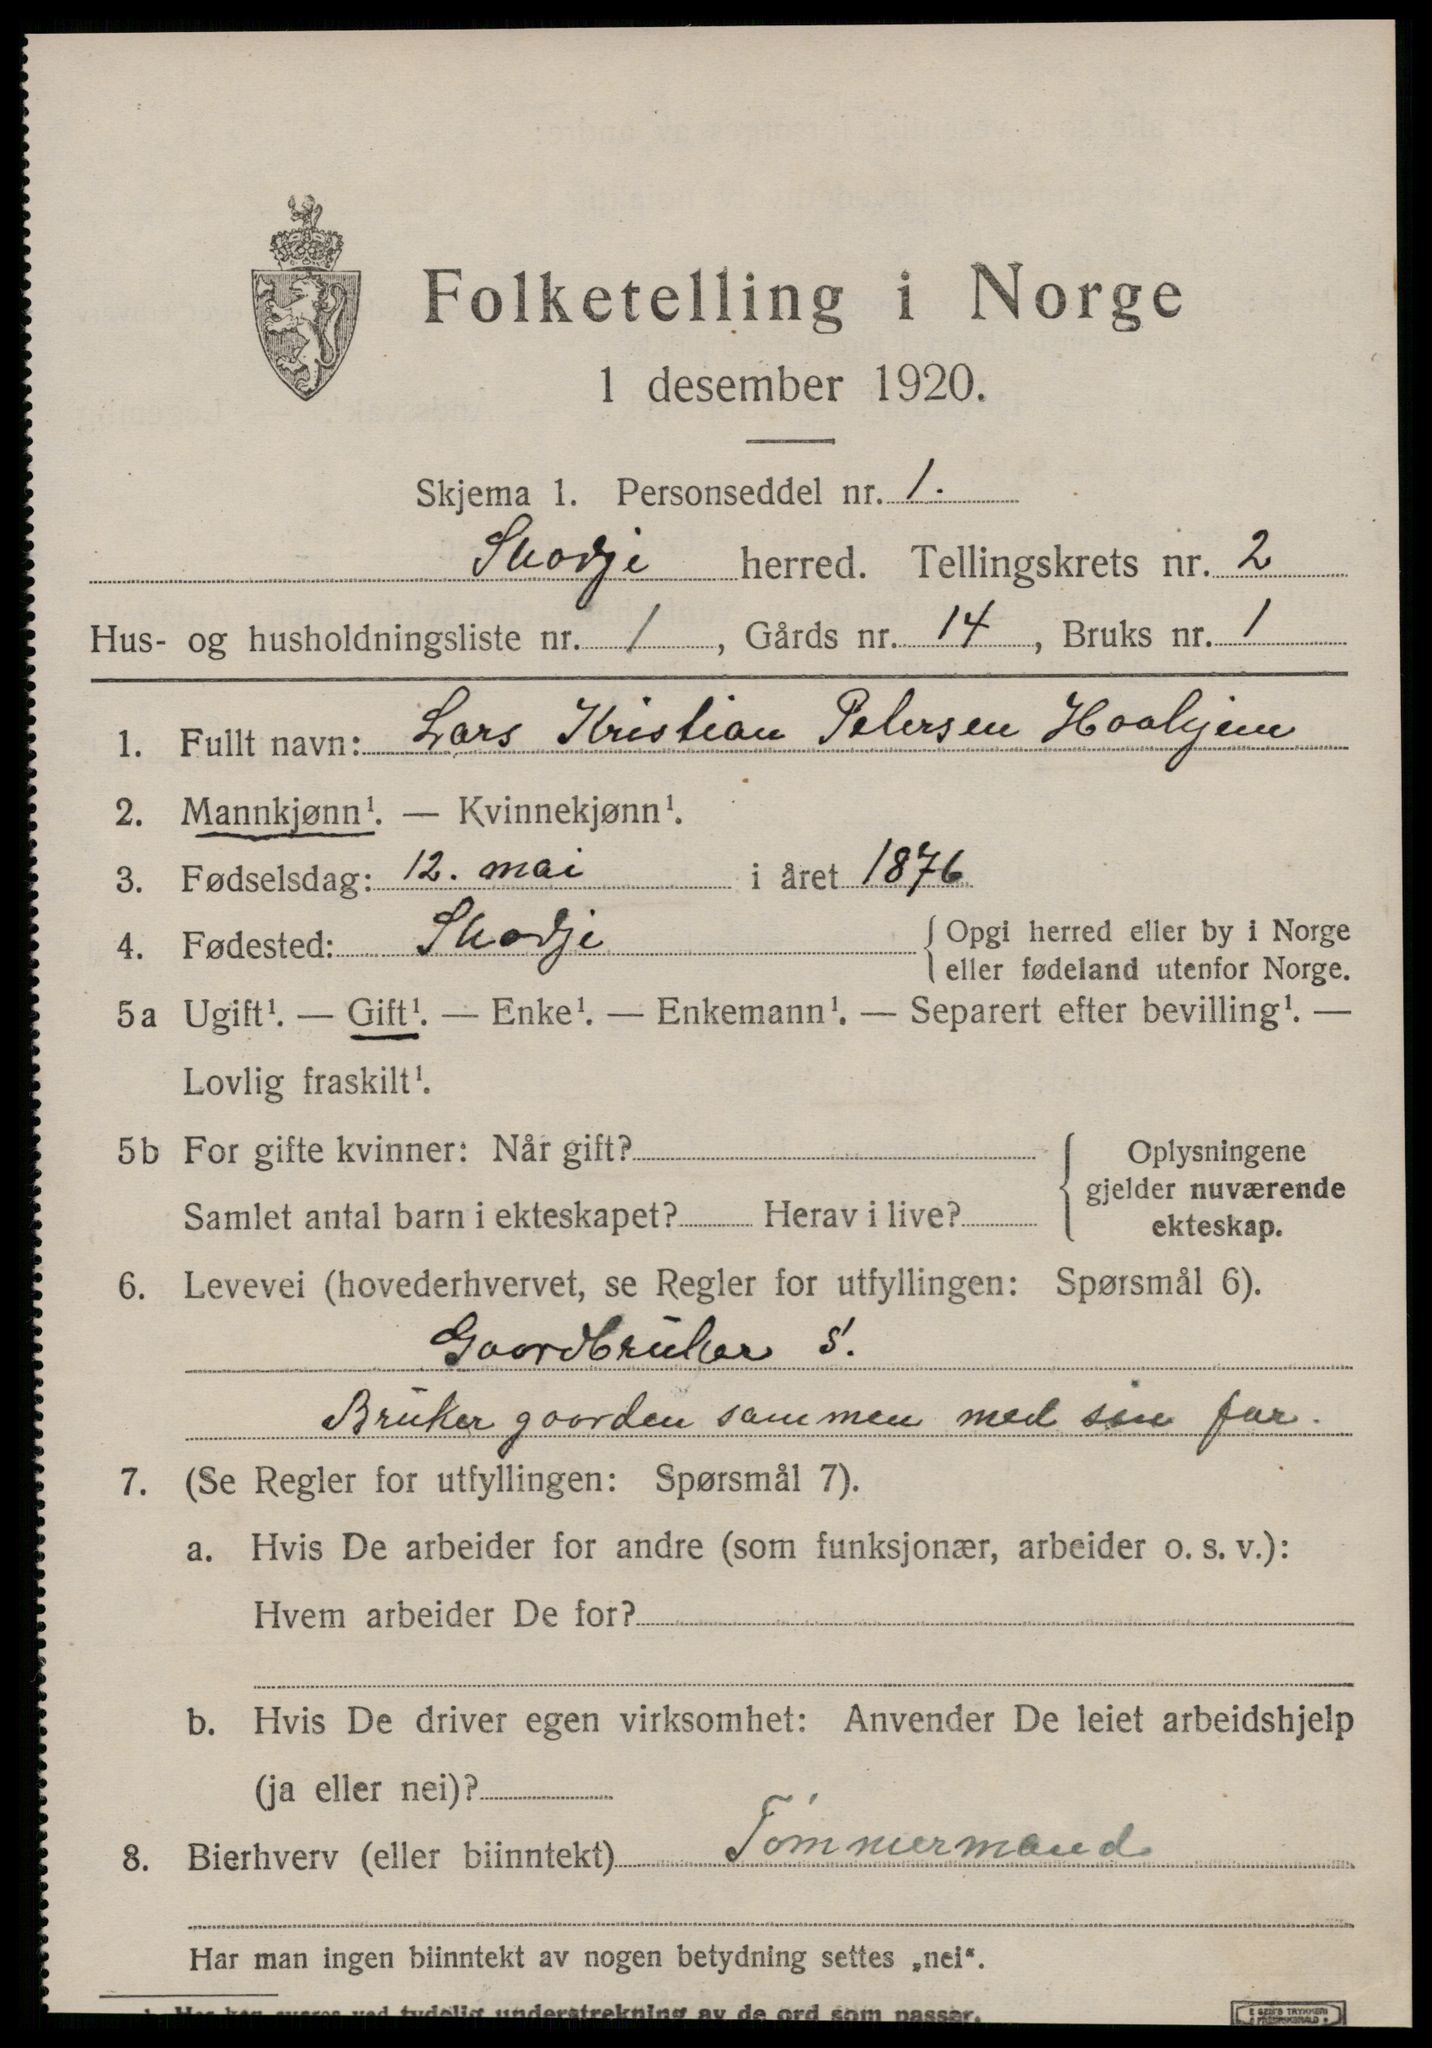 Folketelling i Norge
1 desember 1920.
Skjema 1. Personseddel nr. 1.
Skodje herred. Tellingskrets nr. 2
Hus- og husholdningsliste nr. 1, Gårds nr. 14, Bruks nr. 1
1. Fullt navn: Lars Kristian Petersen Haahjem
2. Mannkjønn¹. — Kvinnekjønn¹.
3. Fødselsdag: 12. mai i året 1876
4. Fødested: Skodje { Opgi herred eller by i Norge
eller fødeland utenfor Norge.
5a Ugift¹. — Gift¹. — Enke¹. — Enkemann¹. — Separert efter bevilling¹. —
Lovlig fraskilt¹.
5b For gifte kvinner: Når gift?
Samlet antal barn i ekteskapet? Herav i live?
{ Oplysningene
gjelder nuværende
ekteskap.
6. Levevei (hovederhvervet, se Regler for utfyllingen: Spørsmål 6).
Gaardbruker S.
Bruker gaarden sammen med sin far.
7. (Se Regler for utfyllingen: Spørsmål 7).
a. Hvis De arbeider for andre (som funksjonær, arbeider o. s. v.):
Hvem arbeider De for?
b. Hvis De driver egen virksomhet: Anvender De leiet arbeidshjelp
(ja eller nei)?
8. Bierhverv (eller biinntekt) Tømmermand
Har man ingen biinntekt av nogen betydning settes „nei".
¹ Her kan svares ved tydelig understrekning av de ord som passer.